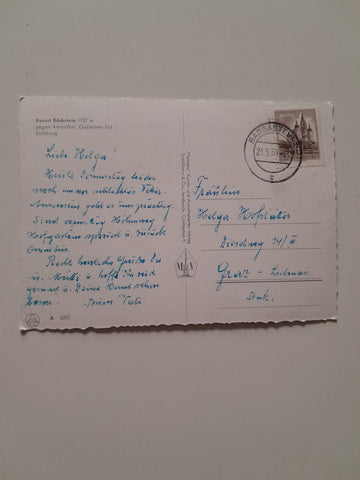 Kurort Böckstein 1127 m
gegen Ankogel, Gasteiner Tal
Salzburg
Liebe Helga!
Heute Donnerstag leider
noch ein schlechtes Wetter.
Ansonsten geht es uns prächtig.
Sind vormittag Höhenweg
Hofgastein spaziert u. zurück
Omnibus.
Recht herzliche Grüße Dir
u. Mutti u. hoffe Ihr seid
gesund u. Deine Hand schon
besser.
Vati
A 4202
BADGASTEIN
21.5.64
c
Fräulein
Helga Hofstätter
74/II
Graz - Liebenau
Stmk.